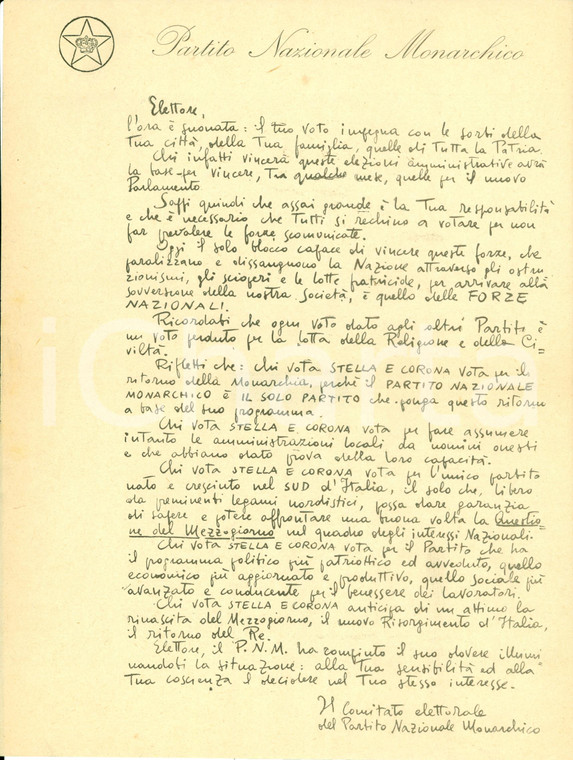 Partito Nazionale Monarchico
Elettore,
l'ora è suonata: il tuo voto impegna con le sorti della
Tua città, della Tua famiglia, quelle di Tutta la Patria.
Chi infatti vincerà queste elezioni amministrative avrà
la base per vincere, Tra qualche mese, quelle per il nuovo
Parlamento
Sappi quindi che assai grande è la Tua responsabilità
e che è necessario che Tutti si rechino a votare per non
far prevalere le forze scomunicate.
Oggi il solo blocco capace di vincere queste forze, che
paralizzano e dissanguano la Nazione attraverso gli ostru
zionismi, gli scioperi e le lotte fratricide, per arrivare alla
sovversione della nostra Società, è quello delle FORZE
NAZIONALI.
Ricordati che ogni voto dato agli altri Partiti è
un voto perduto per la lotta della Religione e della Ci=
viltà.
Rifletti che: chi vota STELLA E CORONA vota per il
ritorno della Monarchia, perchè il PARTITO NAZIONALE
MONARCHICO È IL SOLO PARTITO che ponga questo ritorno
a base del suo programma.
Chi vota STELLA E CORONA vota per fare assumere
intanto le amministrazioni locali da uomini onesti
e che abbiano dato prova della loro capacità.
Chi vota STELLA E CORONA vota per l'unico partito
nato e cresciuto nel SUD d'Italia, il solo che, libero
da preminenti legami nordistici, possa dare garanzia
di sapere e potere affrontare una buona volta la Questio=
ne del Mezzogiorno nel quadro degli interessi Nazionali.
Chi vota STELLA E CORONA vota per il Partito che ha
il programma politico più patriottico ed avveduto, quello
economico più aggiornato e produttivo, quello sociale più
avanzato e conducente per il benessere dei lavoratori.
Chi vota STELLA E CORONA anticipa di un attimo la
rinascita del Mezzogiorno, il nuovo Risorgimento d'Italia,
il ritorno del Re.
Elettore, il P.N.M. ha compiuto il suo dovere illumi
nandoti la situazione: alla Tua sensibilità ed alla
Tua coscienza il decidere nel Tuo stesso interesse.
Il Comitato elettorale
del Partito Nazionale Monarchico